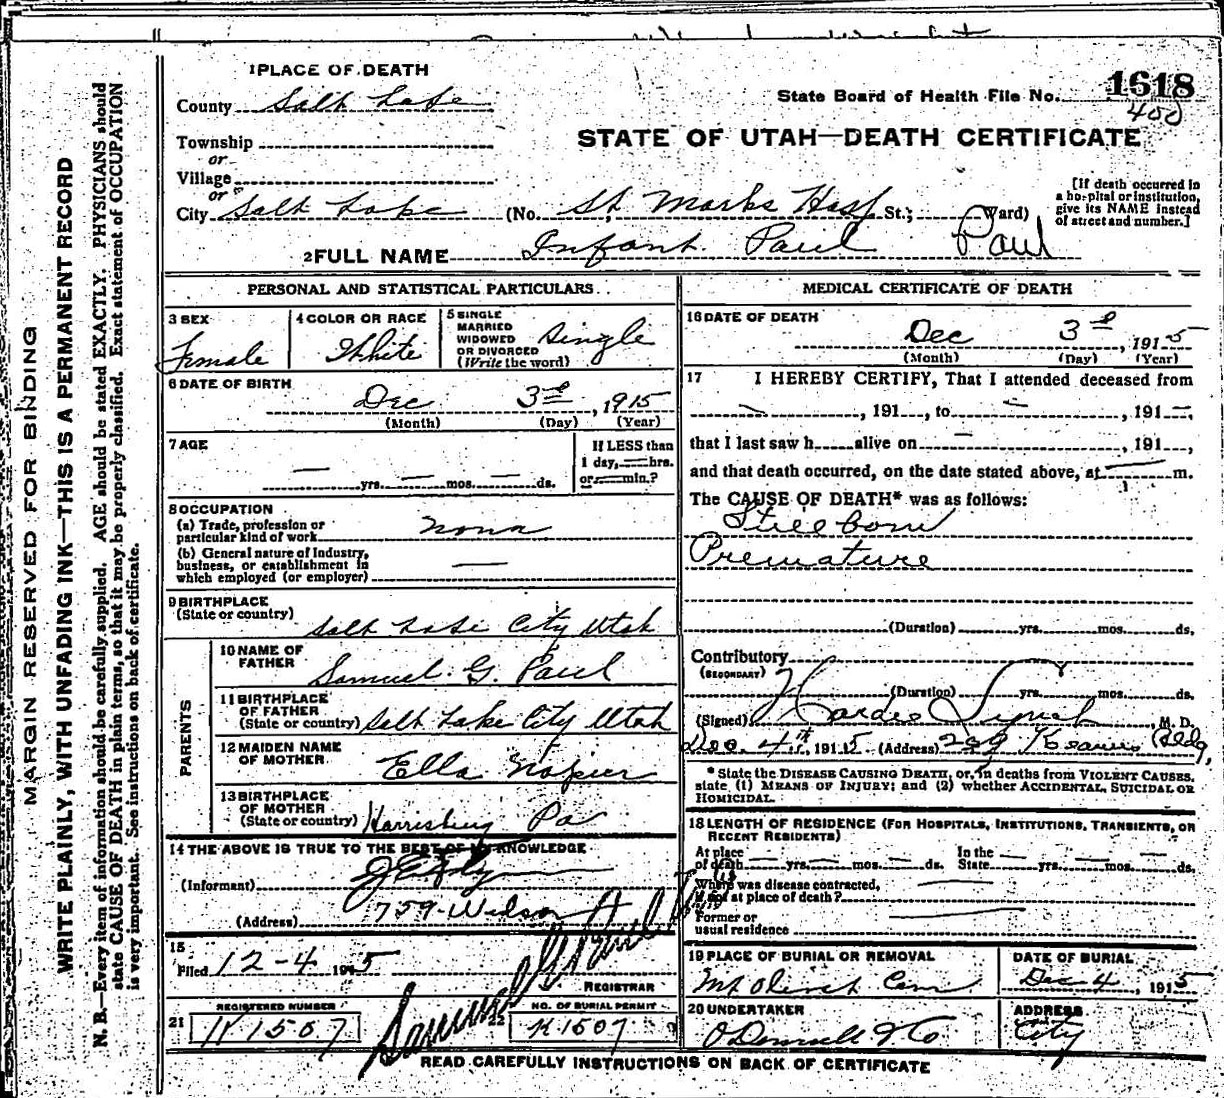 1 PLACE OF DEATH
County Salt Lake
State Board of Health File No. 1618
400
Township
or
STATE OF UTAH—DEATH CERTIFICATE
Village
or
City Salt Lake (No. St Marks Hosp St.; Ward)
[If death occurred in
a hospital or institution,
give its NAME instead
of street and number.]
2 FULL NAME Infant. Paul Paul
PERSONAL AND STATISTICAL PARTICULARS
3 SEX
Female
4 COLOR OR RACE
White
5 SINGLE
MARRIED
WIDOWED
OR DIVORCED
(Write the word)
Single
6 DATE OF BIRTH
Dec 3rd, 1915
(Month) (Day) (Year)
7 AGE
— yrs. — mos. — ds.
If LESS than
1 day, — hrs.
or — min.?
8 OCCUPATION
(a) Trade, profession or
particular kind of work None
(b) General nature of Industry,
business, or establishment in
which employed (or employer) —
9 BIRTHPLACE
(State or country)
Salt Lake City Utah
PARENTS
10 NAME OF
FATHER
Samuel G. Paul
11 BIRTHPLACE
OF FATHER
(State or country) Salt Lake City Utah
12 MAIDEN NAME
OF MOTHER
Ella Napier
13 BIRTHPLACE
OF MOTHER
(State or country) Harrisburg Pa
14 THE ABOVE IS TRUE TO THE BEST OF MY KNOWLEDGE
(Informant)
(Address) 759
Samuel G Paul
15
Filed 12-4 1915
REGISTRAR
REGISTERED NUMBER
21 K1507
NO. OF BURIAL PERMIT
22 K1507
MEDICAL CERTIFICATE OF DEATH
16 DATE OF DEATH
Dec 3rd, 1915
(Month) (Day) (Year)
17 I HEREBY CERTIFY, That I attended deceased from
—, 191 , to —, 191—,
that I last saw h alive on —, 191 ,
and that death occurred, on the date stated above, at — m.
The CAUSE OF DEATH* was as follows:
Stillborn
Premature
(Duration) yrs. mos. ds.
Contributory
(SECONDARY)
(Duration) yrs. mos. ds.
(Signed) Lynch M. D.
Dec. 4th, 1915 (Address) Kearns Bldg.
* State the DISEASE CAUSING DEATH, or, in deaths from VIOLENT CAUSES,
state (1) MEANS OF INJURY; and (2) whether ACCIDENTAL, SUICIDAL OR
HOMICIDAL.
18 LENGTH OF RESIDENCE (FOR HOSPITALS, INSTITUTIONS, TRANSIENTS, OR
RECENT RESIDENTS)
At place
of death — yrs. — mos. — ds.
In the
State — yrs. — mos. — ds.
Where was disease contracted,
if not at place of death? —
Former or
usual residence —
19 PLACE OF BURIAL OR REMOVAL
Mt Olivet Cem
DATE OF BURIAL
Dec 4, 1915
20 UNDERTAKER
O'Donnell & Co
ADDRESS
City
READ CAREFULLY INSTRUCTIONS ON BACK OF CERTIFICATE
MARGIN RESERVED FOR BINDING
WRITE PLAINLY, WITH UNFADING INK—THIS IS A PERMANENT RECORD
N. B.—Every item of information should be carefully supplied. AGE should be stated EXACTLY. PHYSICIANS should
state CAUSE OF DEATH in plain terms, so that it may be properly classified. Exact statement of OCCUPATION
is very important. See instructions on back of certificate.